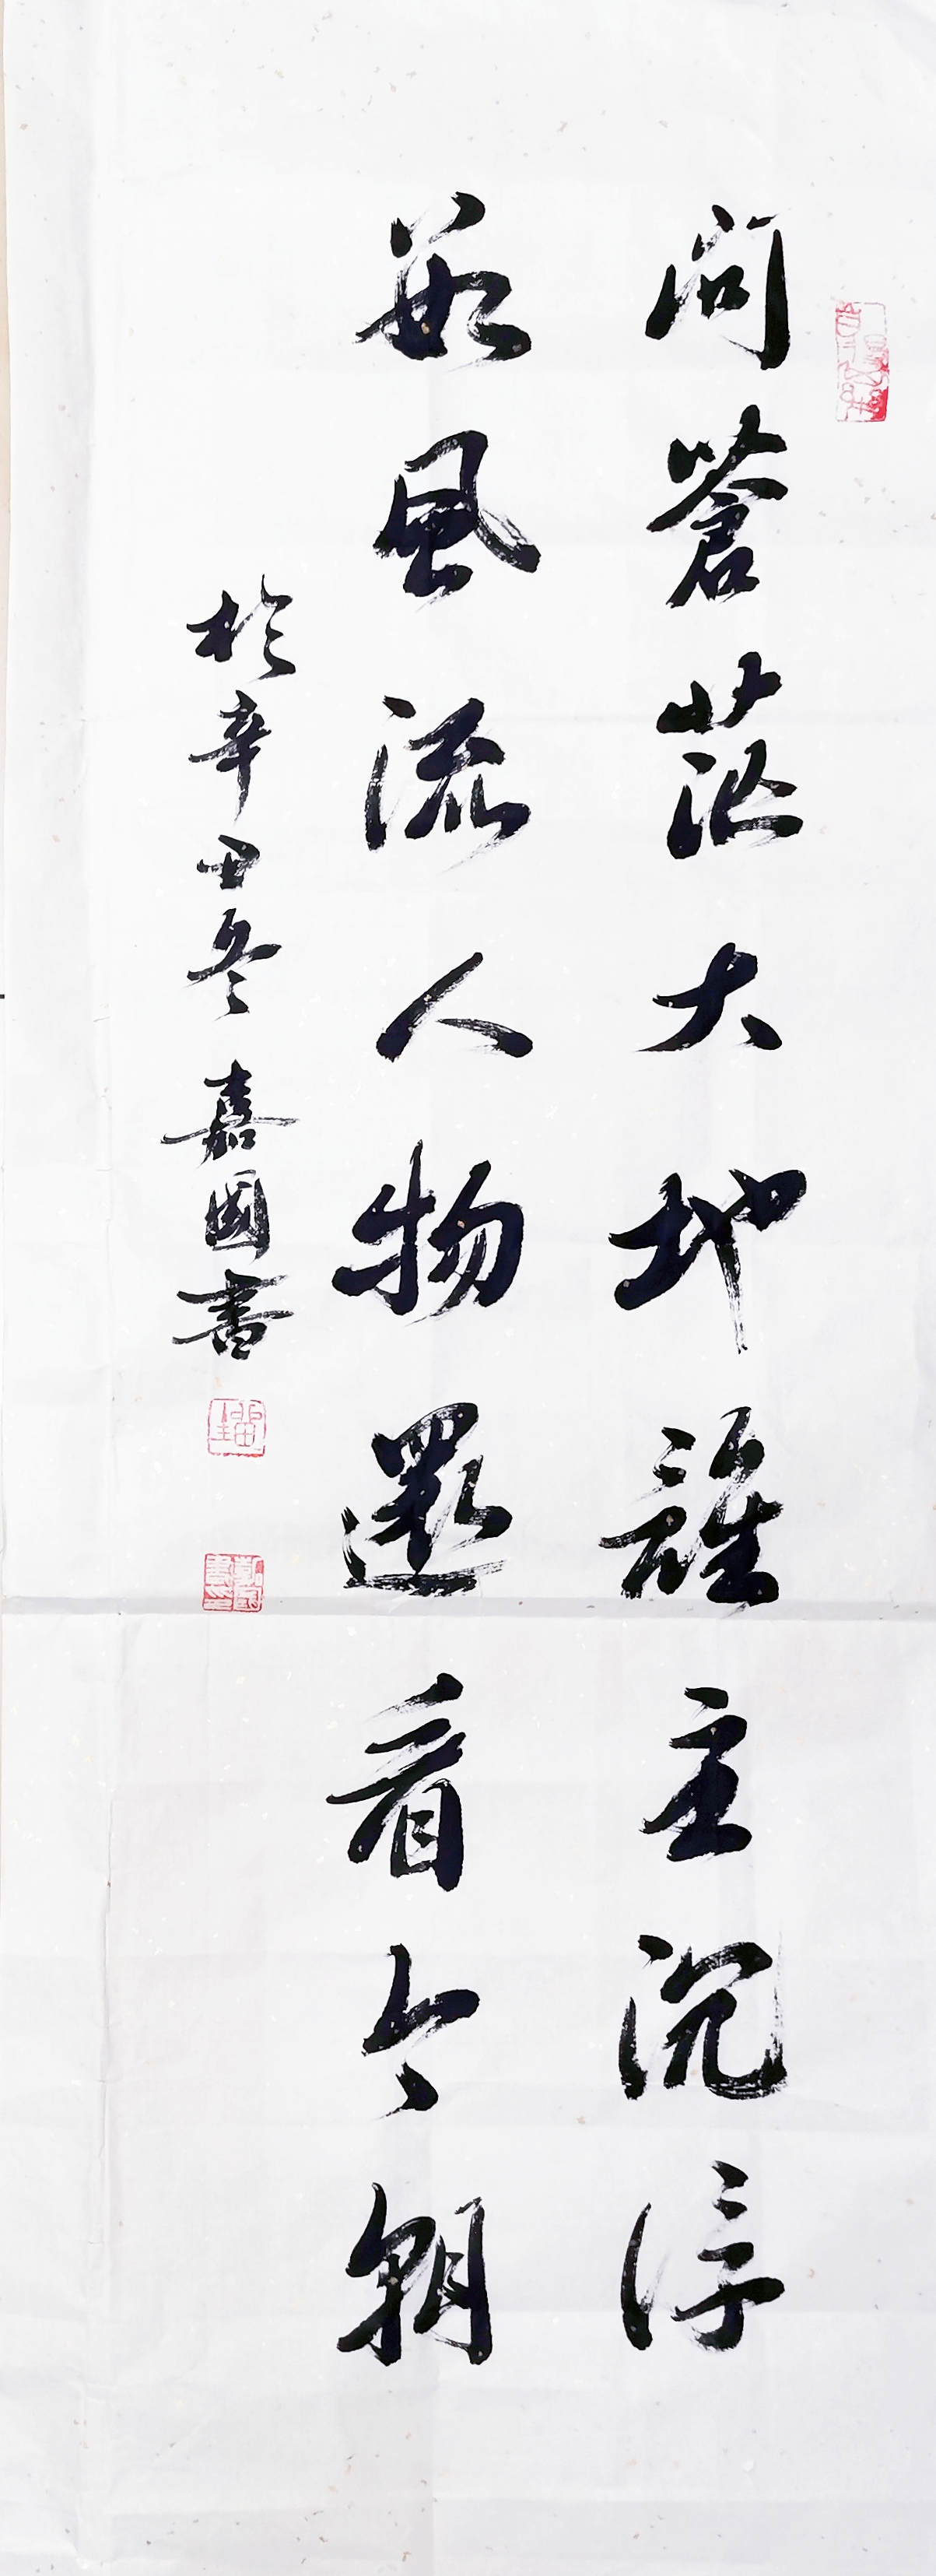 問蒼茫大地誰主沉浮
數風流人物還看今朝
於辛丑冬 嘉國書